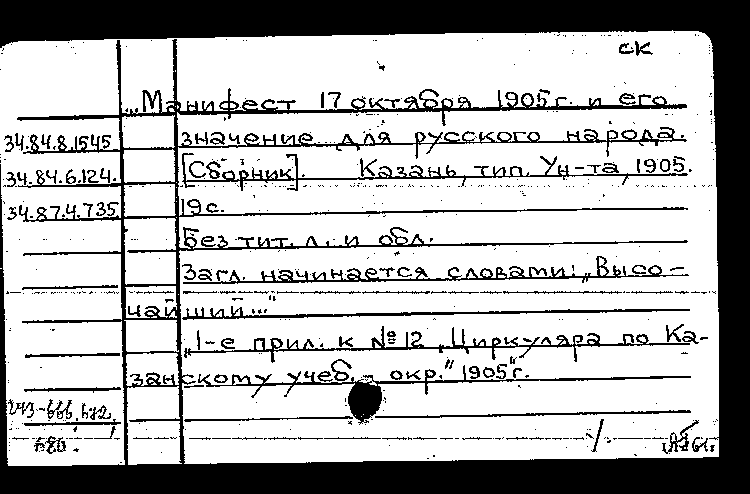 ск
„Манифест 17 октября 1905 г. и его
34.84.8.1545 значение для русского народа.
34.84.6.124. [Сборник]. Казань, тип. Ун-та, 1905.
34.87.4.735 19 с.
Без тит. л. и обл.
Загл. начинается словами: „Высо-
чайший..."
„1-е прил. к № 12 „Циркуляра по Ка-
занскому учеб. - окр." 1905" г.